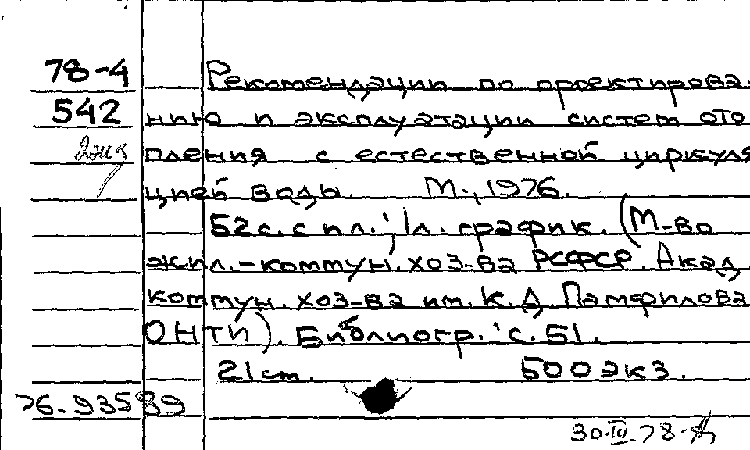 78-4 Рекомендации по проектирова-
542 нию и эксплуатации систем ото-
2 экз пления с естественной циркуля-
цией воды. М., 1976.
52с. с ил.; 1л. график. (М-во
жил.-коммун. хоз-ва РСФСР. Акад.
коммун. хоз-ва им. К.Д. Памфилова.
ОНТИ). Библиогр.: с. 51.
21 см. 500 экз.
76-93589
30.IV.78